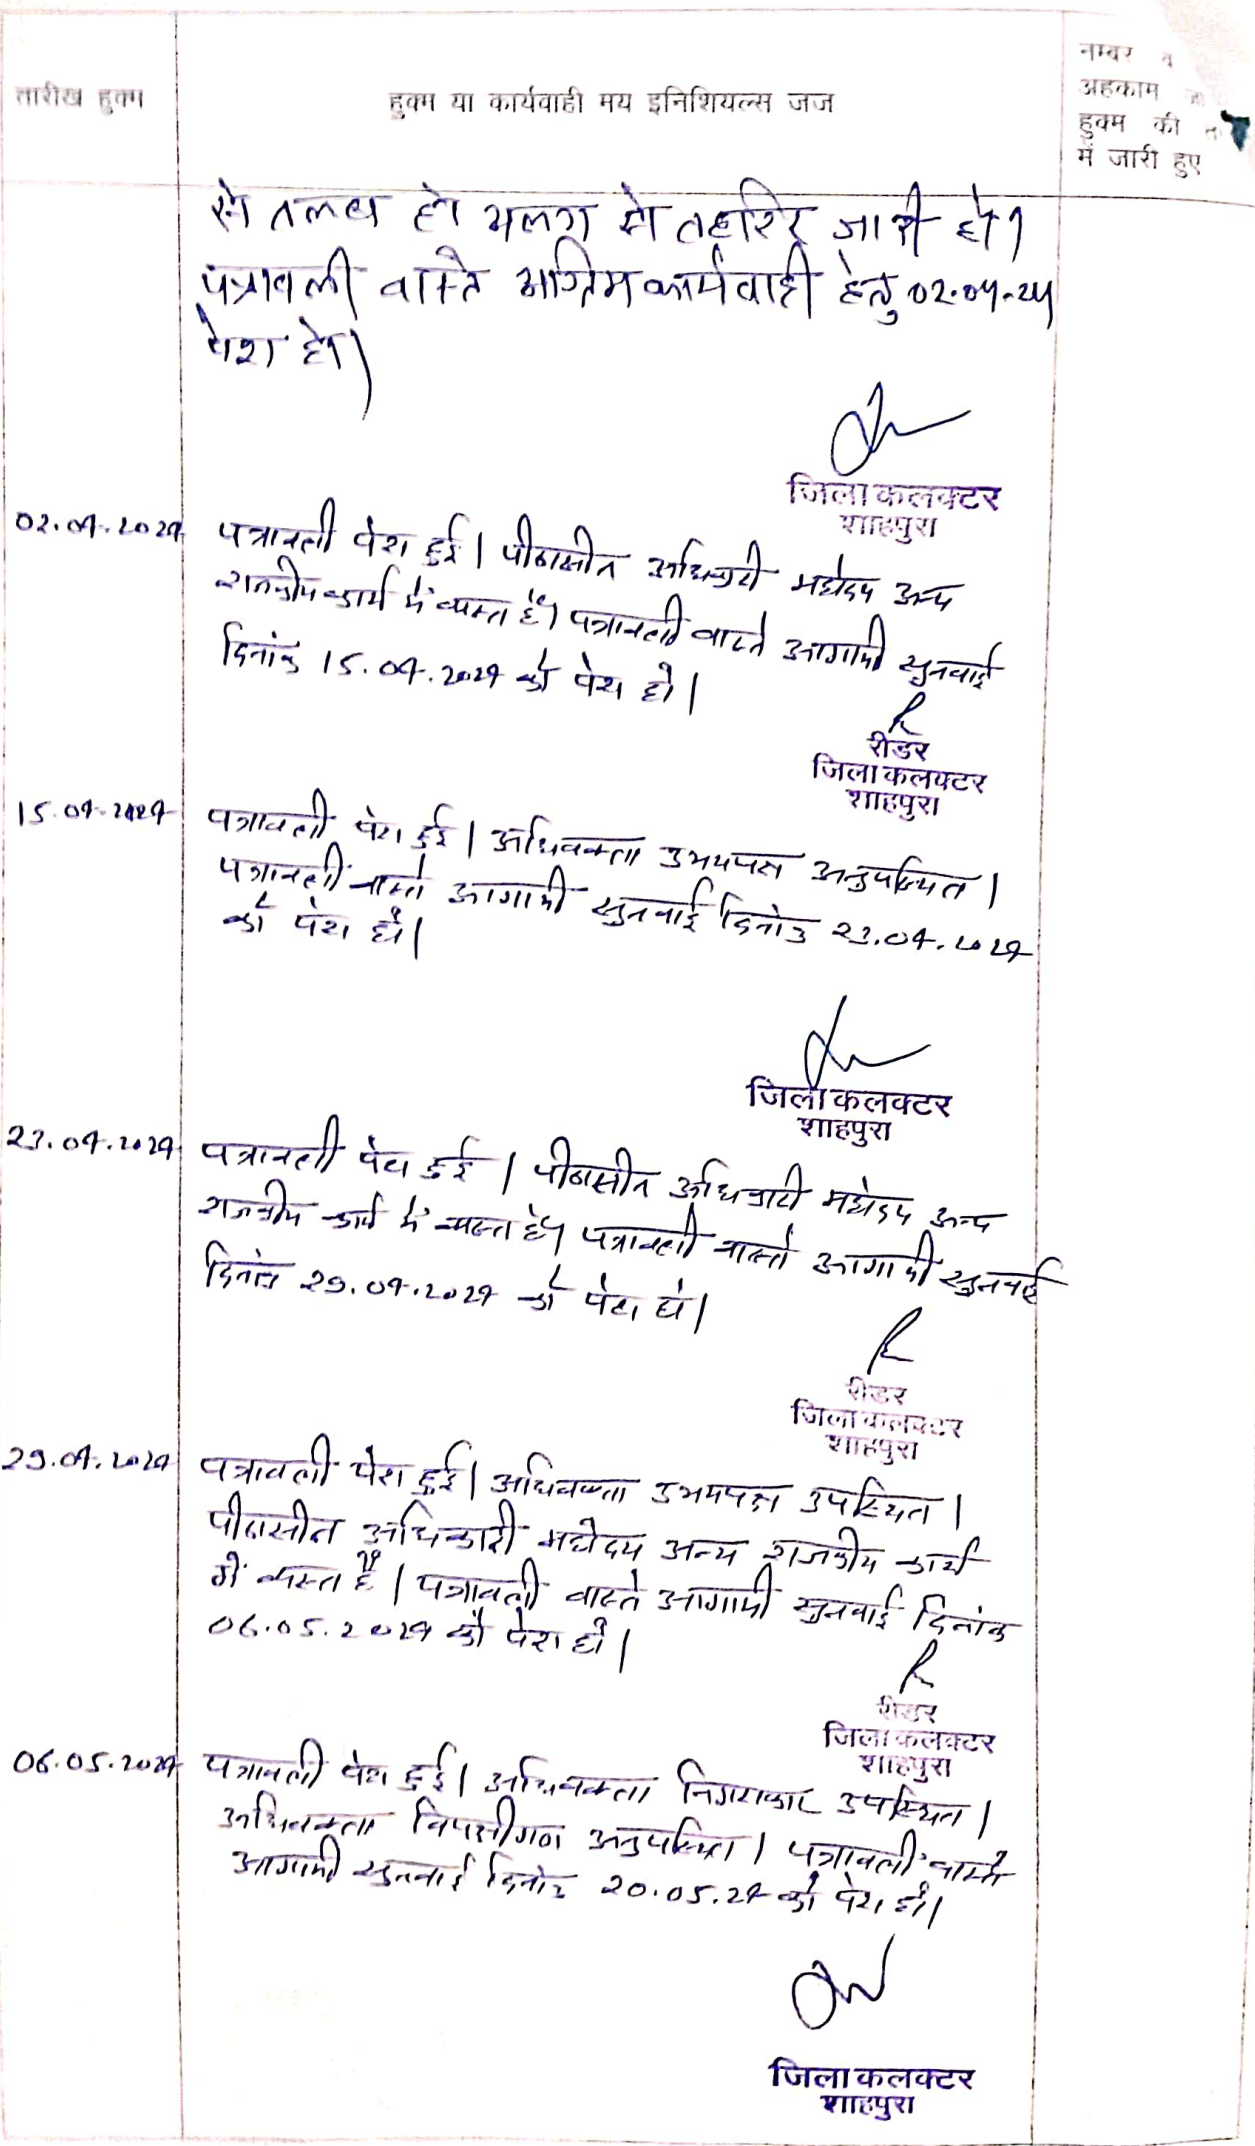 तारीख हुक्म
हुक्म या कार्यवाही मय इनिशियल्स जज
नम्बर व
अहकाम
हुक्म की
में जारी हुए
से तलब हो अलग से तहरिर जारी हो।
पत्रावली वास्ते अग्रिम कार्यवाही हेतु 02.04.24
पेश हो।
जिला कलक्टर
शाहपुरा
02.04.2024 पत्रावली पेश हुई। पीठासीन अधिकारी महोदय अन्य
राजकीय कार्य में व्यस्त है। पत्रावली वास्ते आगामी सुनवाई
दिनांक 15.04.2024 को पेश हो।
रीडर
जिला कलक्टर
शाहपुरा
15.04.2024 पत्रावली पेश हुई। अधिवक्ता उभयपक्ष अनुपस्थित।
पत्रावली वास्ते आगामी सुनवाई दिनांक 23.04.2024
को पेश हो।
जिला कलक्टर
शाहपुरा
23.04.2024 पत्रावली पेश हुई। पीठासीन अधिकारी महोदय अन्य
राजकीय कार्य में व्यस्त है। पत्रावली वास्ते आगामी सुनवाई
दिनांक 29.04.2024 को पेश हो।
रीडर
जिला कलक्टर
शाहपुरा
29.04.2024 पत्रावली पेश हुई। अधिवक्ता उभयपक्ष उपस्थित।
पीठासीन अधिकारी महोदय अन्य राजकीय कार्य
में व्यस्त है। पत्रावली वास्ते आगामी सुनवाई दिनांक
06.05.2024 को पेश हो।
रीडर
जिला कलक्टर
शाहपुरा
06.05.2024 पत्रावली पेश हुई। अधिवक्ता निगराकार उपस्थित।
अधिवक्ता विपक्षीगण अनुपस्थित। पत्रावली वास्ते
आगामी सुनवाई दिनांक 20.05.24 को पेश हो।
जिला कलक्टर
शाहपुरा